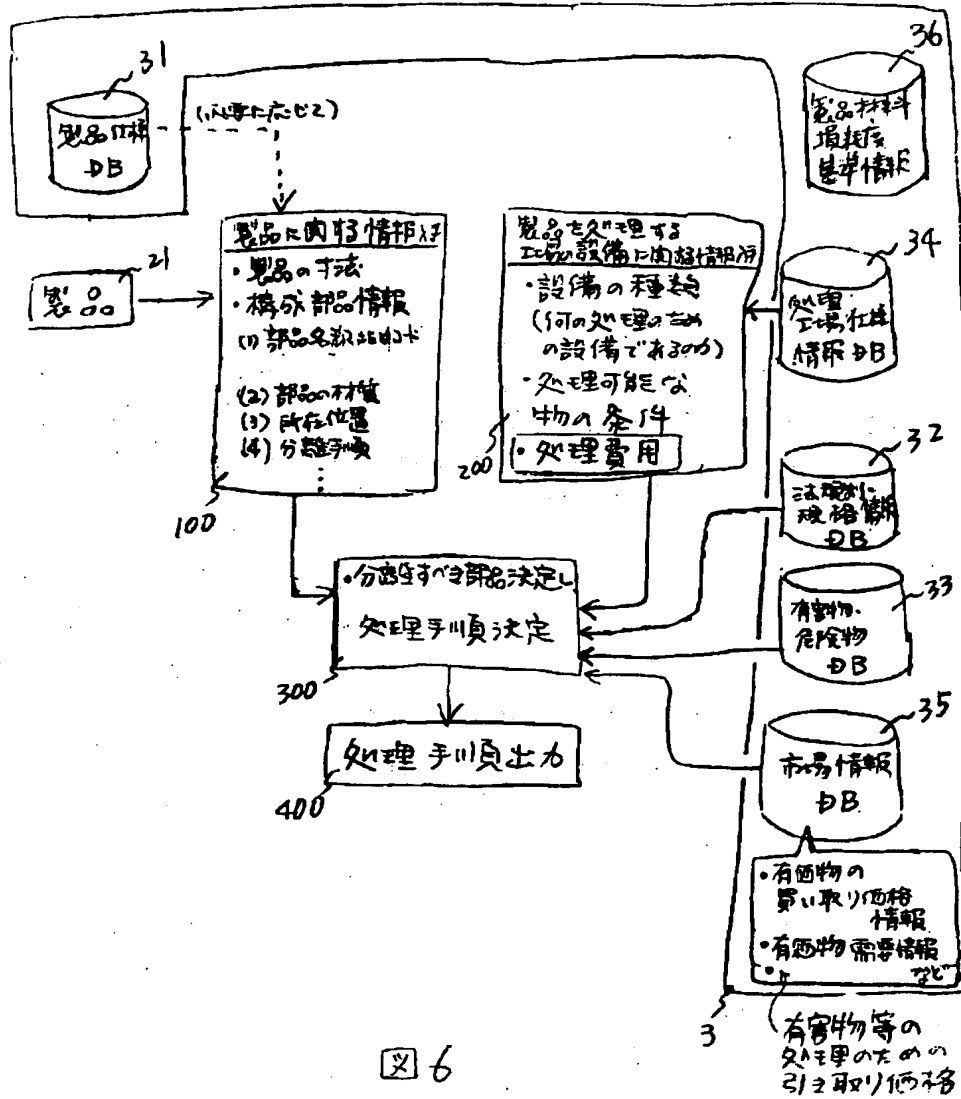 31
製品仕様
DB
(必要に応じて)
36
製品材料
損耗度
基準情報
21
製品
製品に関する情報入手
・製品の寸法
・構成部品情報
(1) 部品名称またはコード
(2) 部品の材質
(3) 所在位置
(4) 分離手順
100
製品を処理する
工場の設備に関する情報入手
・設備の種類
(何の処理のため
の設備であるのか)
・処理可能な
物の条件
・処理費用
200
34
処理
工場仕様
情報DB
32
法規制・
規格情報
DB
33
有害物・
危険物
DB
・分離すべき部品決定し
処理手順決定
300
処理手順出力
400
35
市場情報
DB
・有価物の
買い取り価格
情報
・有価物需要情報
など
3
有害物等の
処理のための
引き取り価格
図6